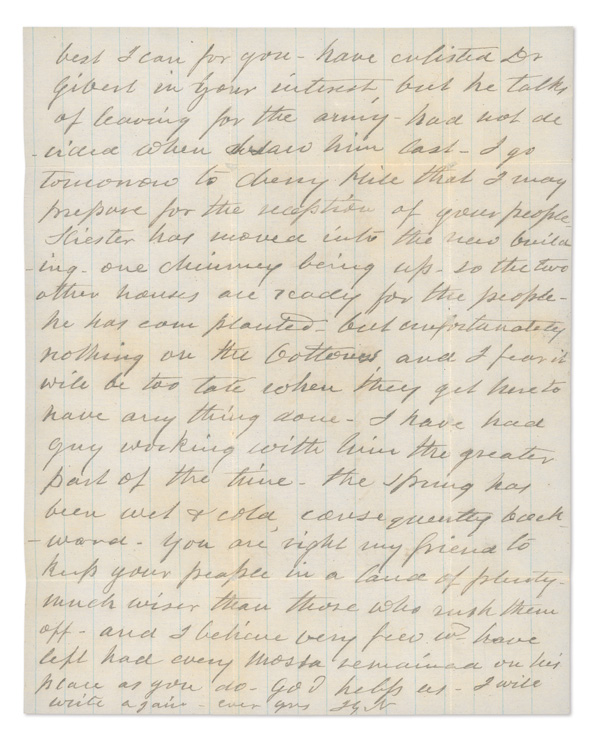 best I can for you - have enlisted Dr
Gibert in your interest, but he talks
of leaving for the army - had not de
-cided when I saw him last - I go
tomorrow to Cherry Hill that I may
prepare for the reception of your people.
Hiester has moved into the new build
-ing - one chimney being up - so the two
other houses are ready for the people -
he has corn planted - but unfortunately
nothing on the bottoms, and I fear it
will be too late when they get here to
have any thing done - I have had
Guy working with him the greater
part of the time - the spring has
been wet & cold, consequently back-
-ward - You are right my friend to
keep your people in a land of plenty -
much wiser than those who rush them
off - and I believe very few wd have
left had every Massa remained on his
place as you do - God help us - I will
write again - ever yrs